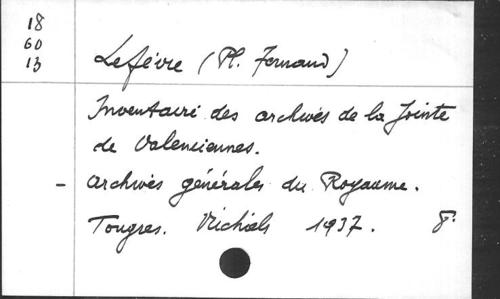 18
60
13
Lefèvre (Pl. Fernand)
Inventaire des archives de la Jointe
de Valenciennes.
- Archives générales du Royaume.
Tongres. Michiels 1937. 8°